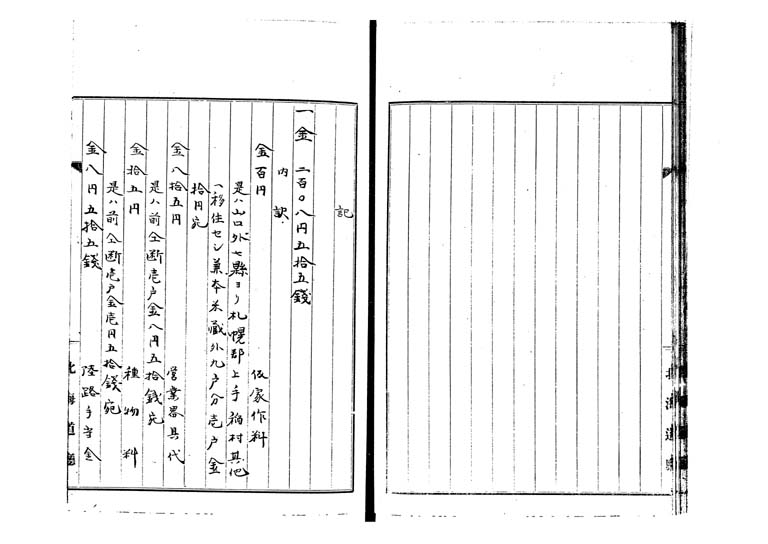 記
一金 二百〇八円五拾五錢
内訳
金百円 仮家作料
是ハ山口外七縣ヨリ札幌郡上手稲村其他
ヘ移住セシ兼本米蔵外九戸分壱戸金
拾円宛
金八拾五円 営業器具代
是ハ前仝断壱戸金八円五拾錢宛
金拾五円 種物料
是ハ前仝断壱戸金壱円五拾錢宛
金八円五拾五錢 陸路手当金
北海道廳
北海道廳